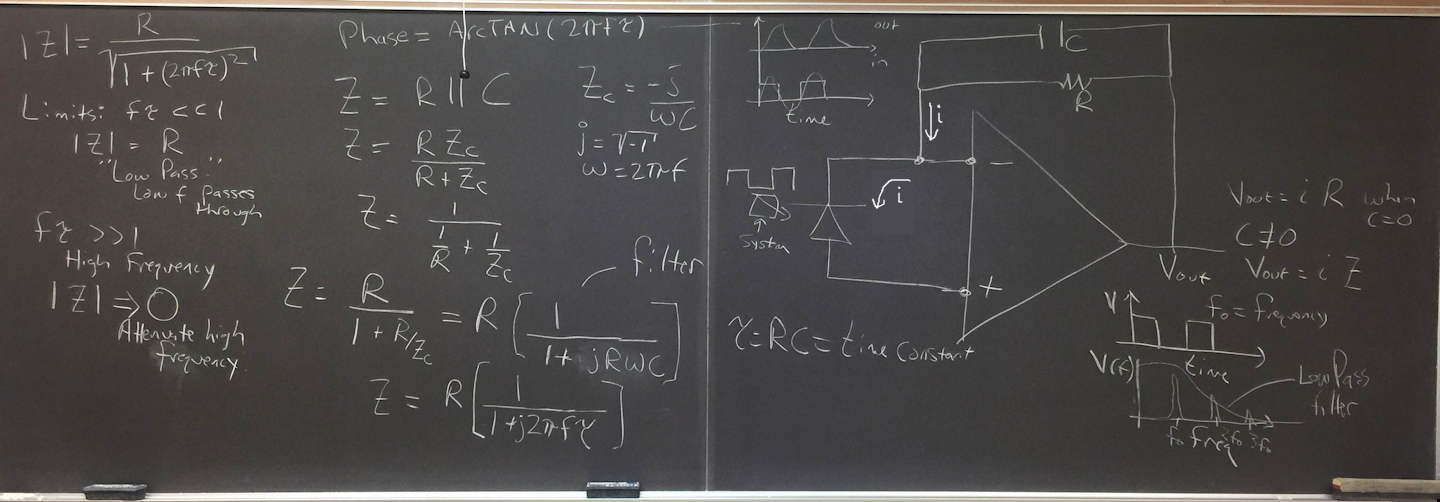 |Z| = R / √(1 + (2πfτ)²)
Limits: fτ << 1
|Z| = R
"Low Pass"
Low f Passes
through
fτ >> 1
High Frequency
|Z| ⇒ 0
Attenuate high
frequency
Phase = ArcTAN(2πfτ)
Z = R || C
Z = R Zc / (R + Zc)
Z = 1 / (1/R + 1/Zc)
filter
Z = R / (1 + R/Zc) = R [1 / (1 + jRωC)]
Z = R [1 / (1+j2πfτ)]
Zc = -j / ωC
j = √-1
ω = 2πf
out
in
time
C
R
i
i
−
+
System
Vout
τ = RC = time constant
Vout = i R when
C=0
C≠0
Vout = i Z
V
f₀ = frequency
time
V(f)
Low Pass
filter
f₀ freq 3f₀